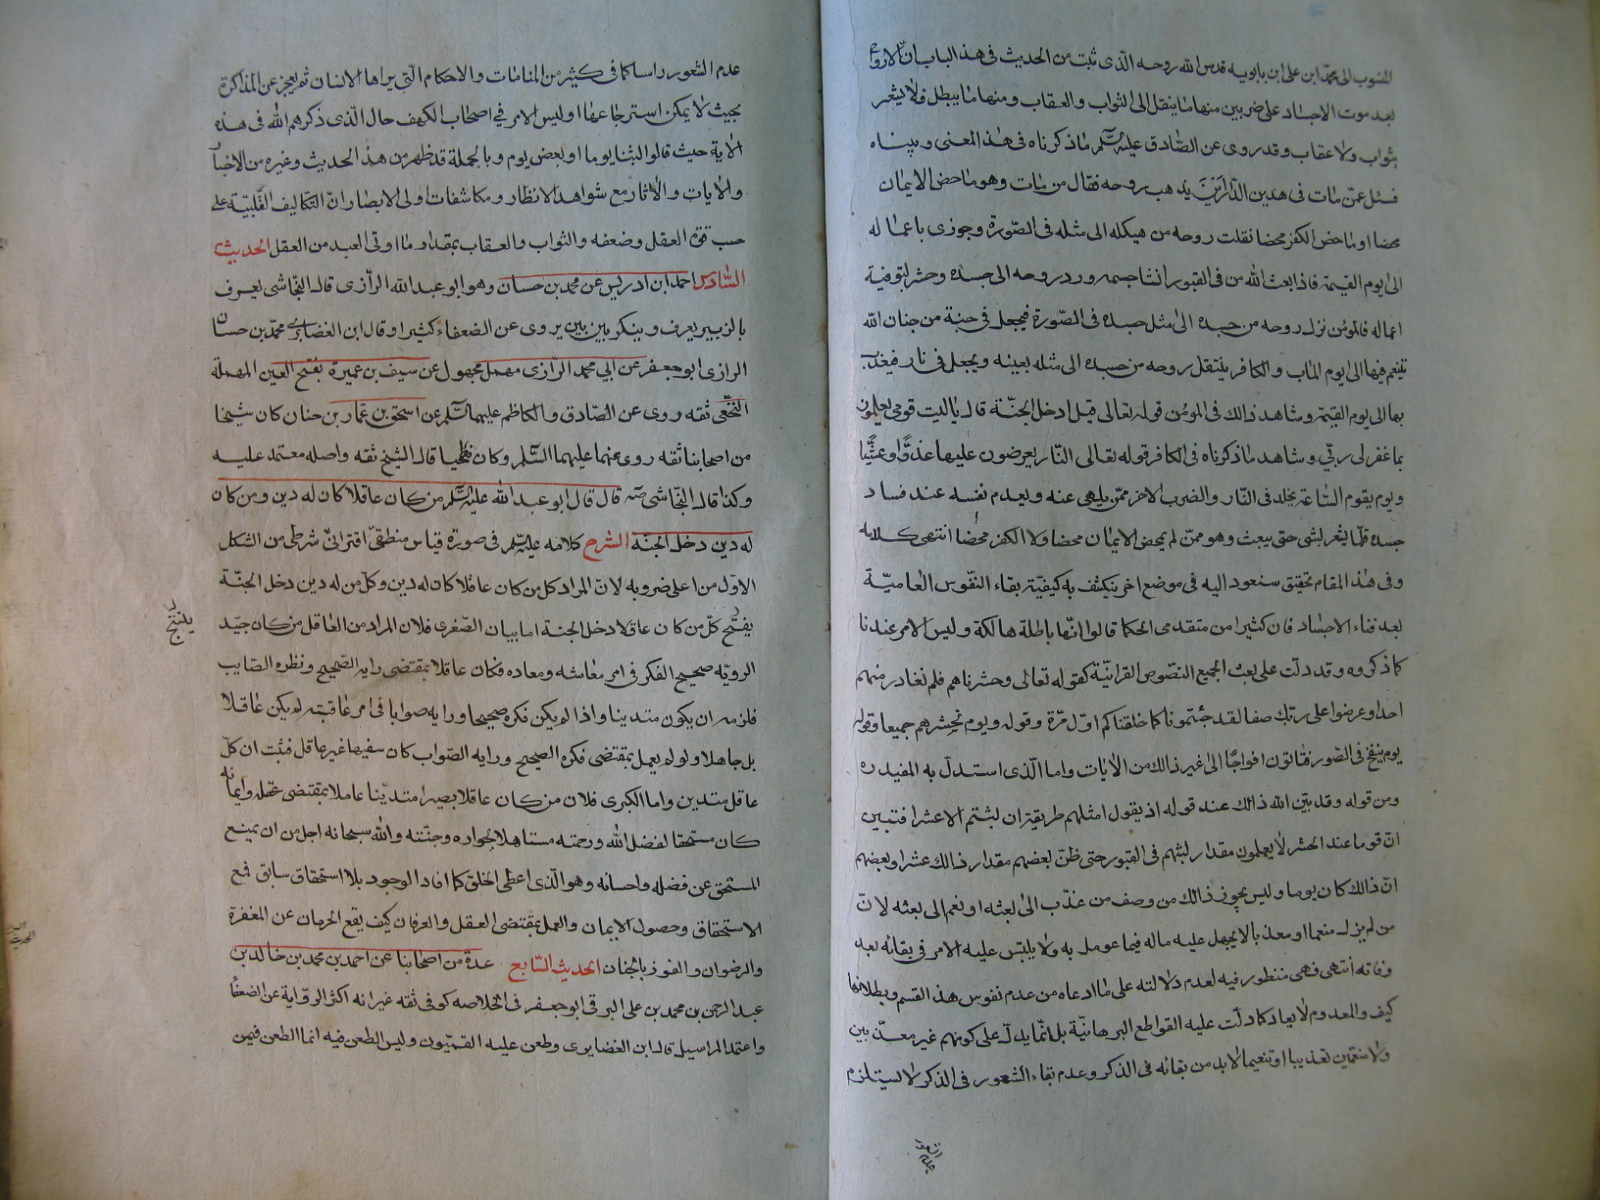 المنسوب الى محمد ابن على ابن بابويه قدس الله روحه الذى ثبت من الحديث فى هذا الباب ان الارواح
بعد موت الاجساد على ضربين منها ما ينقل الى الثواب والعقاب ومنها ما يبطل فلا يشعر
بثواب ولا عقاب وقد روى عن الصادق عليه السلم ما ذكرناه فى هذا المعنى وبيناه
فسئل عمن مات فى هذين الدارين اين يذهب روحه فقال من مات وهو ماحض الايمان
محضا او ماحض الكفر محضا نقلت روحه من هيكله الى مثله فى الصورة وجوزى باعماله
الى يوم القيمة فاذا بعث الله من فى القبور انشا جسمه ورد روحه الى جسده وحشر لتوفية
اعماله فالمؤمن نزل روحه من جسده الى مثل جسده فى الصورة فيجعل فى جنة من جنان الله
تنعم فيها الى يوم الماب والكافر ينتقل روحه من جسده الى مثله بعينه ويجعل فى نار فيعذب
بها الى يوم القيمة وشاهد ذالك فى المؤمن قوله تعالى قيل ادخل الجنة قال ياليت قومى يعلمون
بما غفر لى ربى وشاهد ما ذكرناه فى الكافر قوله تعالى النار يعرضون عليها غدوا وعشيا
ويوم يقوم الساعة يخلد فى النار والضرب الاخر ممن يلهى عنه ويعدم نفسه عند فساد
جسده فلا يشعر بشى حتى يبعث وهو ممن لم يمحض الايمان محضا ولا الكفر محضا انتهى كلامه
وفى هذا المقام تحقيق سنعود اليه فى موضع اخر ينكشف به كيفية بقاء النفوس العامية
بعد فناء الاجساد فان كثيرا من متقدمى الحكما قالوا انها باطلة هالكة وليس الامر عندنا
كما ذكروه وقد دلت على بعث الجميع النصوص القرانية كقوله تعالى وحشرناهم فلم نغادر منهم
احدا وعرضوا على ربك صفا لقد جئتمونا كما خلقناكم اول مرة وقوله ويوم نحشرهم جميعا وقوله
يوم ينفخ فى الصور فتاتون افواجا الى غير ذالك من الايات واما الذى استدل به المفيد ره
ومن قوله وقد بين الله ذالك عند قوله اذ يقول امثلهم طريقة ان لبثتم الا عشرا فتبين
ان قوما عند الحشر لا يعلمون مقدار لبثهم فى القبور حتى ظن بعضهم مقدار ذالك عشرا وبعضهم
ان ذالك كان يوما وليس يجوز ذالك من وصف من عذب الى بعثه او نعم الى بعثه لان
من لم يزل منعما او معذبا لا يجهل عليه ماله فيما عومل به ولا يلتبس عليه الامر فى بقائه بعد
وفاته انتهى فهى منظور فيه لعدم دلالته على ما ادعاه من عدم نفوس هذا القسم وبطلانها
كيف والمعدوم لا يعاد كما دلت عليه القواطع البرهانية بل انما يدل على كونهم غير معذبين
ولا منعمين تعذيبا او تنعيما لا بد من بقائه فى الذكر وعدم بقاء الشعور فى الذكر لا يستلزم
عدم الشعور
عدم الشعور راسا كما فى كثير من المنامات والاحكام التى يراها الانسان ثم يعجز عن المذاكرة
بحيث لا يمكن استرجاعها او ليس الامر فى اصحاب الكهف حال الذى ذكرهم الله فى هذه
الاية حيث قالوا لبثنا يوما او بعض يوم وبالجملة قد ظهر من هذا الحديث وغيره من الاخبار
والايات والاثار مع شواهد الانظار ومكاشفات اولى الابصار ان التكاليف القلبية على
حسب قوة العقل وضعفه والثواب والعقاب بمقدار ما اوتى العبد من العقل الحديث
السادس احمد ابن ادريس عن محمد بن حسان وهو ابو عبد الله الرازى قال النجاشى يعرف
بالزبير يعرف وينكر بين بين يروى عن الضعفاء كثيرا وقال ابن الغضايرى محمد بن حسان
الرازى ابو جعفر عن ابى محمد الرازى مهمل مجهول عن سيف بن عميرة بفتح العين المهملة
النخعى ثقه روى عن الصادق والكاظم عليهما السلم عن اسحق بن عمار بن حنان كان شيخا
من اصحابنا ثقه روى عنهما عليهما السلم وكان فطحيا قال الشيخ ثقه واصله معتمد عليه
وكذا قال النجاشى قال قال ابو عبد الله عليه السلم من كان عاقلا كان له دين ومن كان
له دين دخل الجنة الشرح كلامه عليه السلم فى صورة قياس منطقى اقترانى شرطى من الشكل
الاول من اعلى ضروبه لان المراد كل من كان عاقلا كان له دين وكل من له دين دخل الجنة
ينتج كل من كان عاقلا دخل الجنة اما بيان الصغرى فلان المراد من العاقل من كان جيد
الروية صحيح الفكر فى امر معاشه ومعاده فكان عاقلا بمقتضى رايه الصحيح ونظره الصايب
فلزمه ان يكون متدينا واذا لم يكن فكره صحيحا ورايه صوابا فى امر عاقبته لم يكن عاقلا
بل جاهلا ولو لم يعمل بمقتضى فكره الصحيح ورايه الصواب كان سفيها غير عاقل فثبت ان كل
عاقل متدين واما الكبرى فلان من كان عاقلا بصيرا متدينا عاملا بمقتضى عقله وايمانه
كان مستحقا لفضل الله ورحمته مستاهلا لجواره وجنته والله سبحانه اجل من ان يمنع
المستحق عن فضله واحسانه وهو الذى اعطى الخلق كما افاد الوجود بلا استحقاق سابق فمع
الاستحقاق وحصول الايمان والعمل بمقتضى العقل والعرفان كيف يقع الحرمان عن المغفرة
والرضوان والفوز بالجنان الحديث السابع عدة من اصحابنا عن احمد بن محمد بن خالد بن
عبد الرحمن بن محمد بن على البرقى ابو جعفر فى الخلاصه كوفى ثقه غير انه اكثر الرواية عن الضعفا
واعتمد المراسيل قال ابن الغضايرى وطعن عليه القميون وليس الطعن فيه انما الطعن فيمن
ينتج